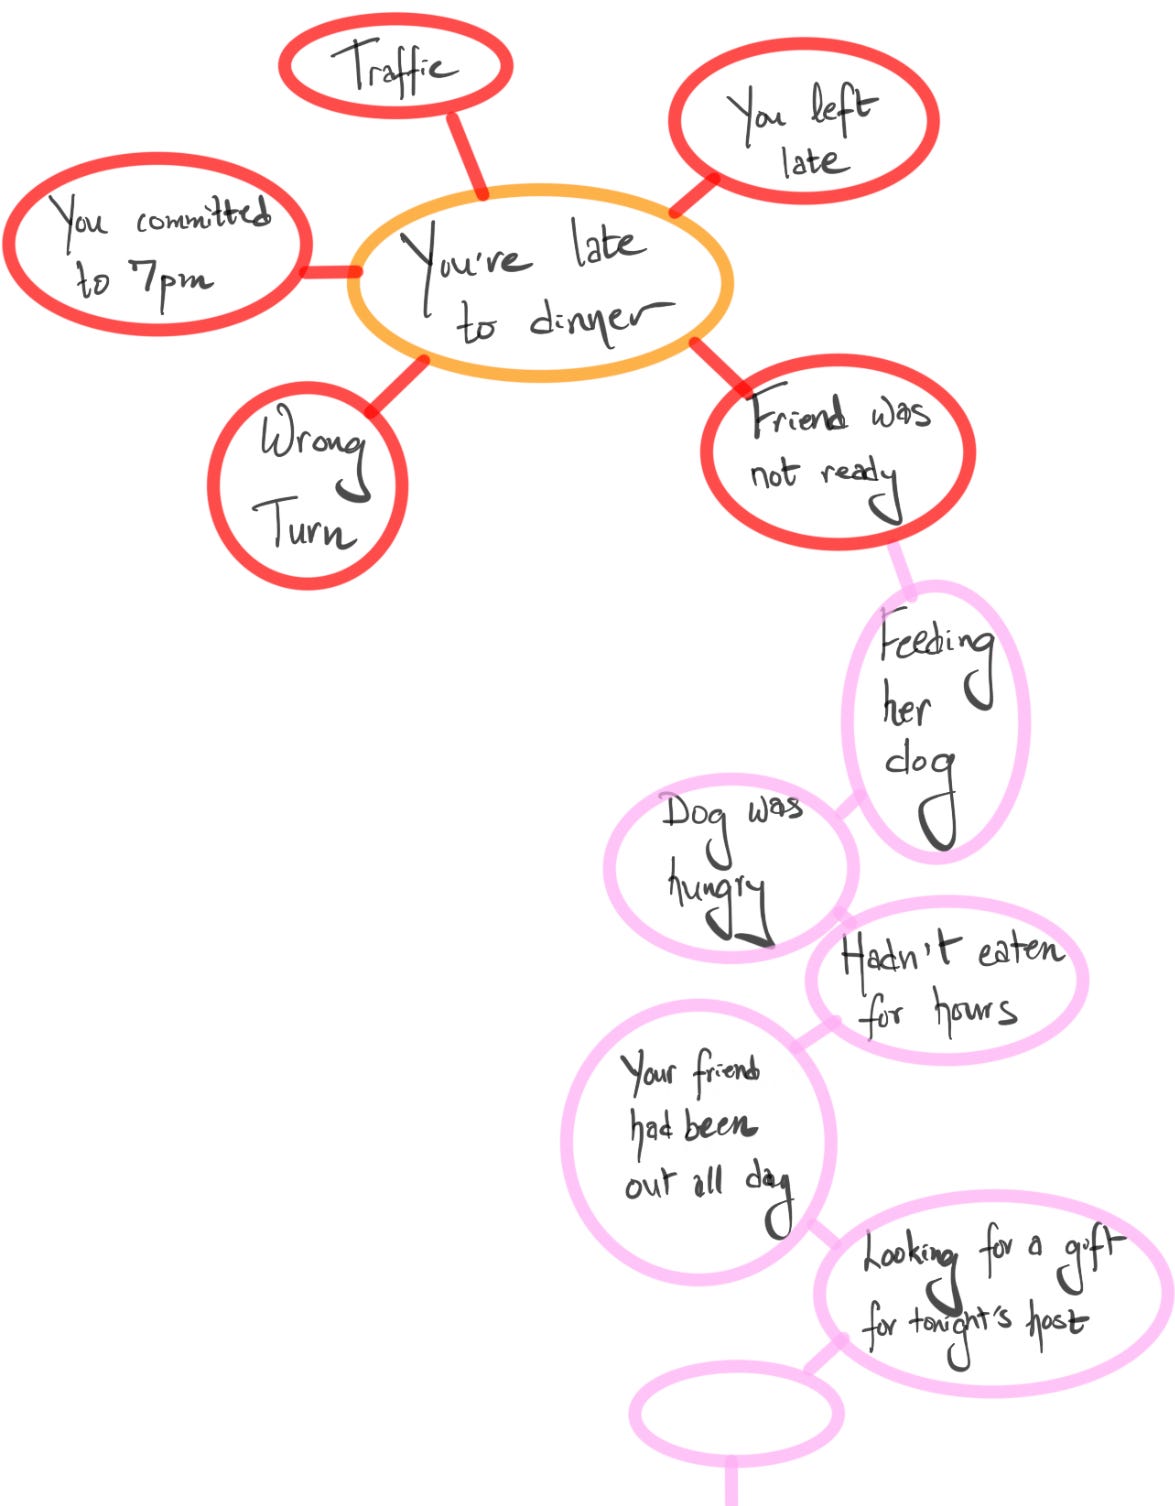 Traffic
You left
late
You committed
to 7pm
You're late
to dinner
Wrong
Turn
Friend was
not ready
Feeding
her
dog
Dog was
hungry
Hadn't eaten
for hours
Your friend
had been
out all day
Looking for a gift
for tonight's host